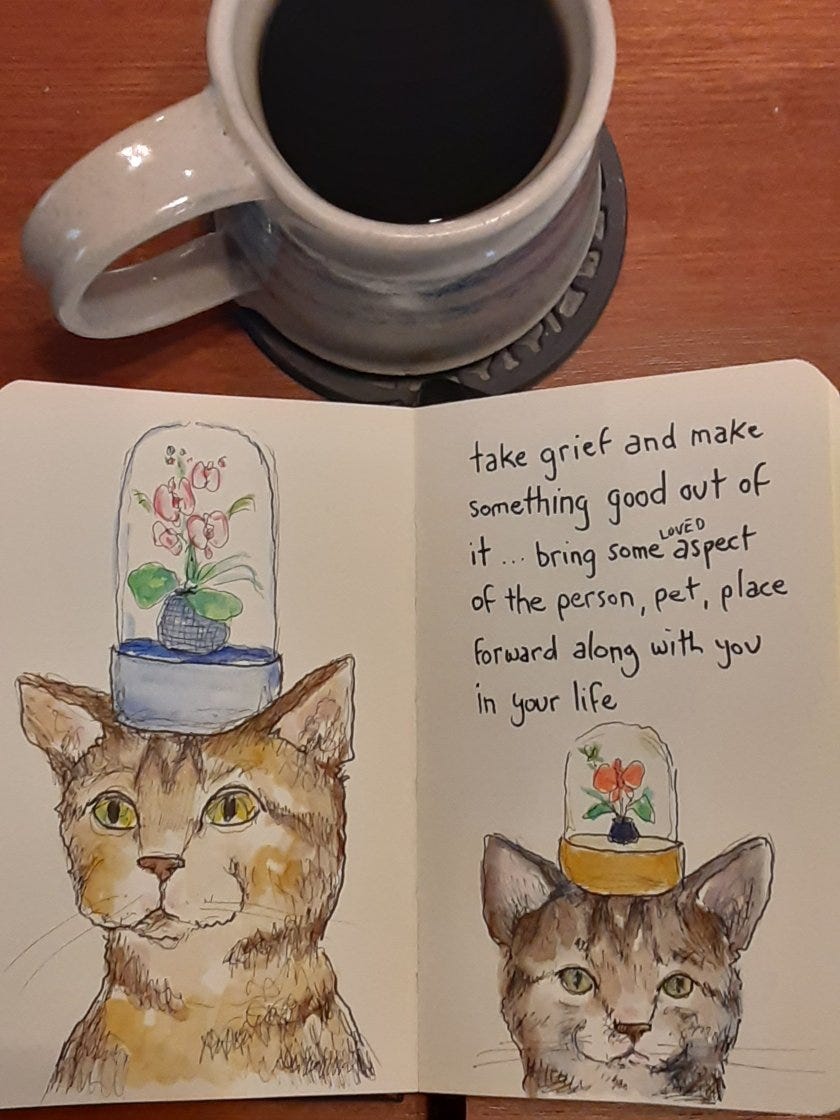 take grief and make
something good out of
it ... bring some LOVED aspect
of the person, pet, place
forward along with you
in your life